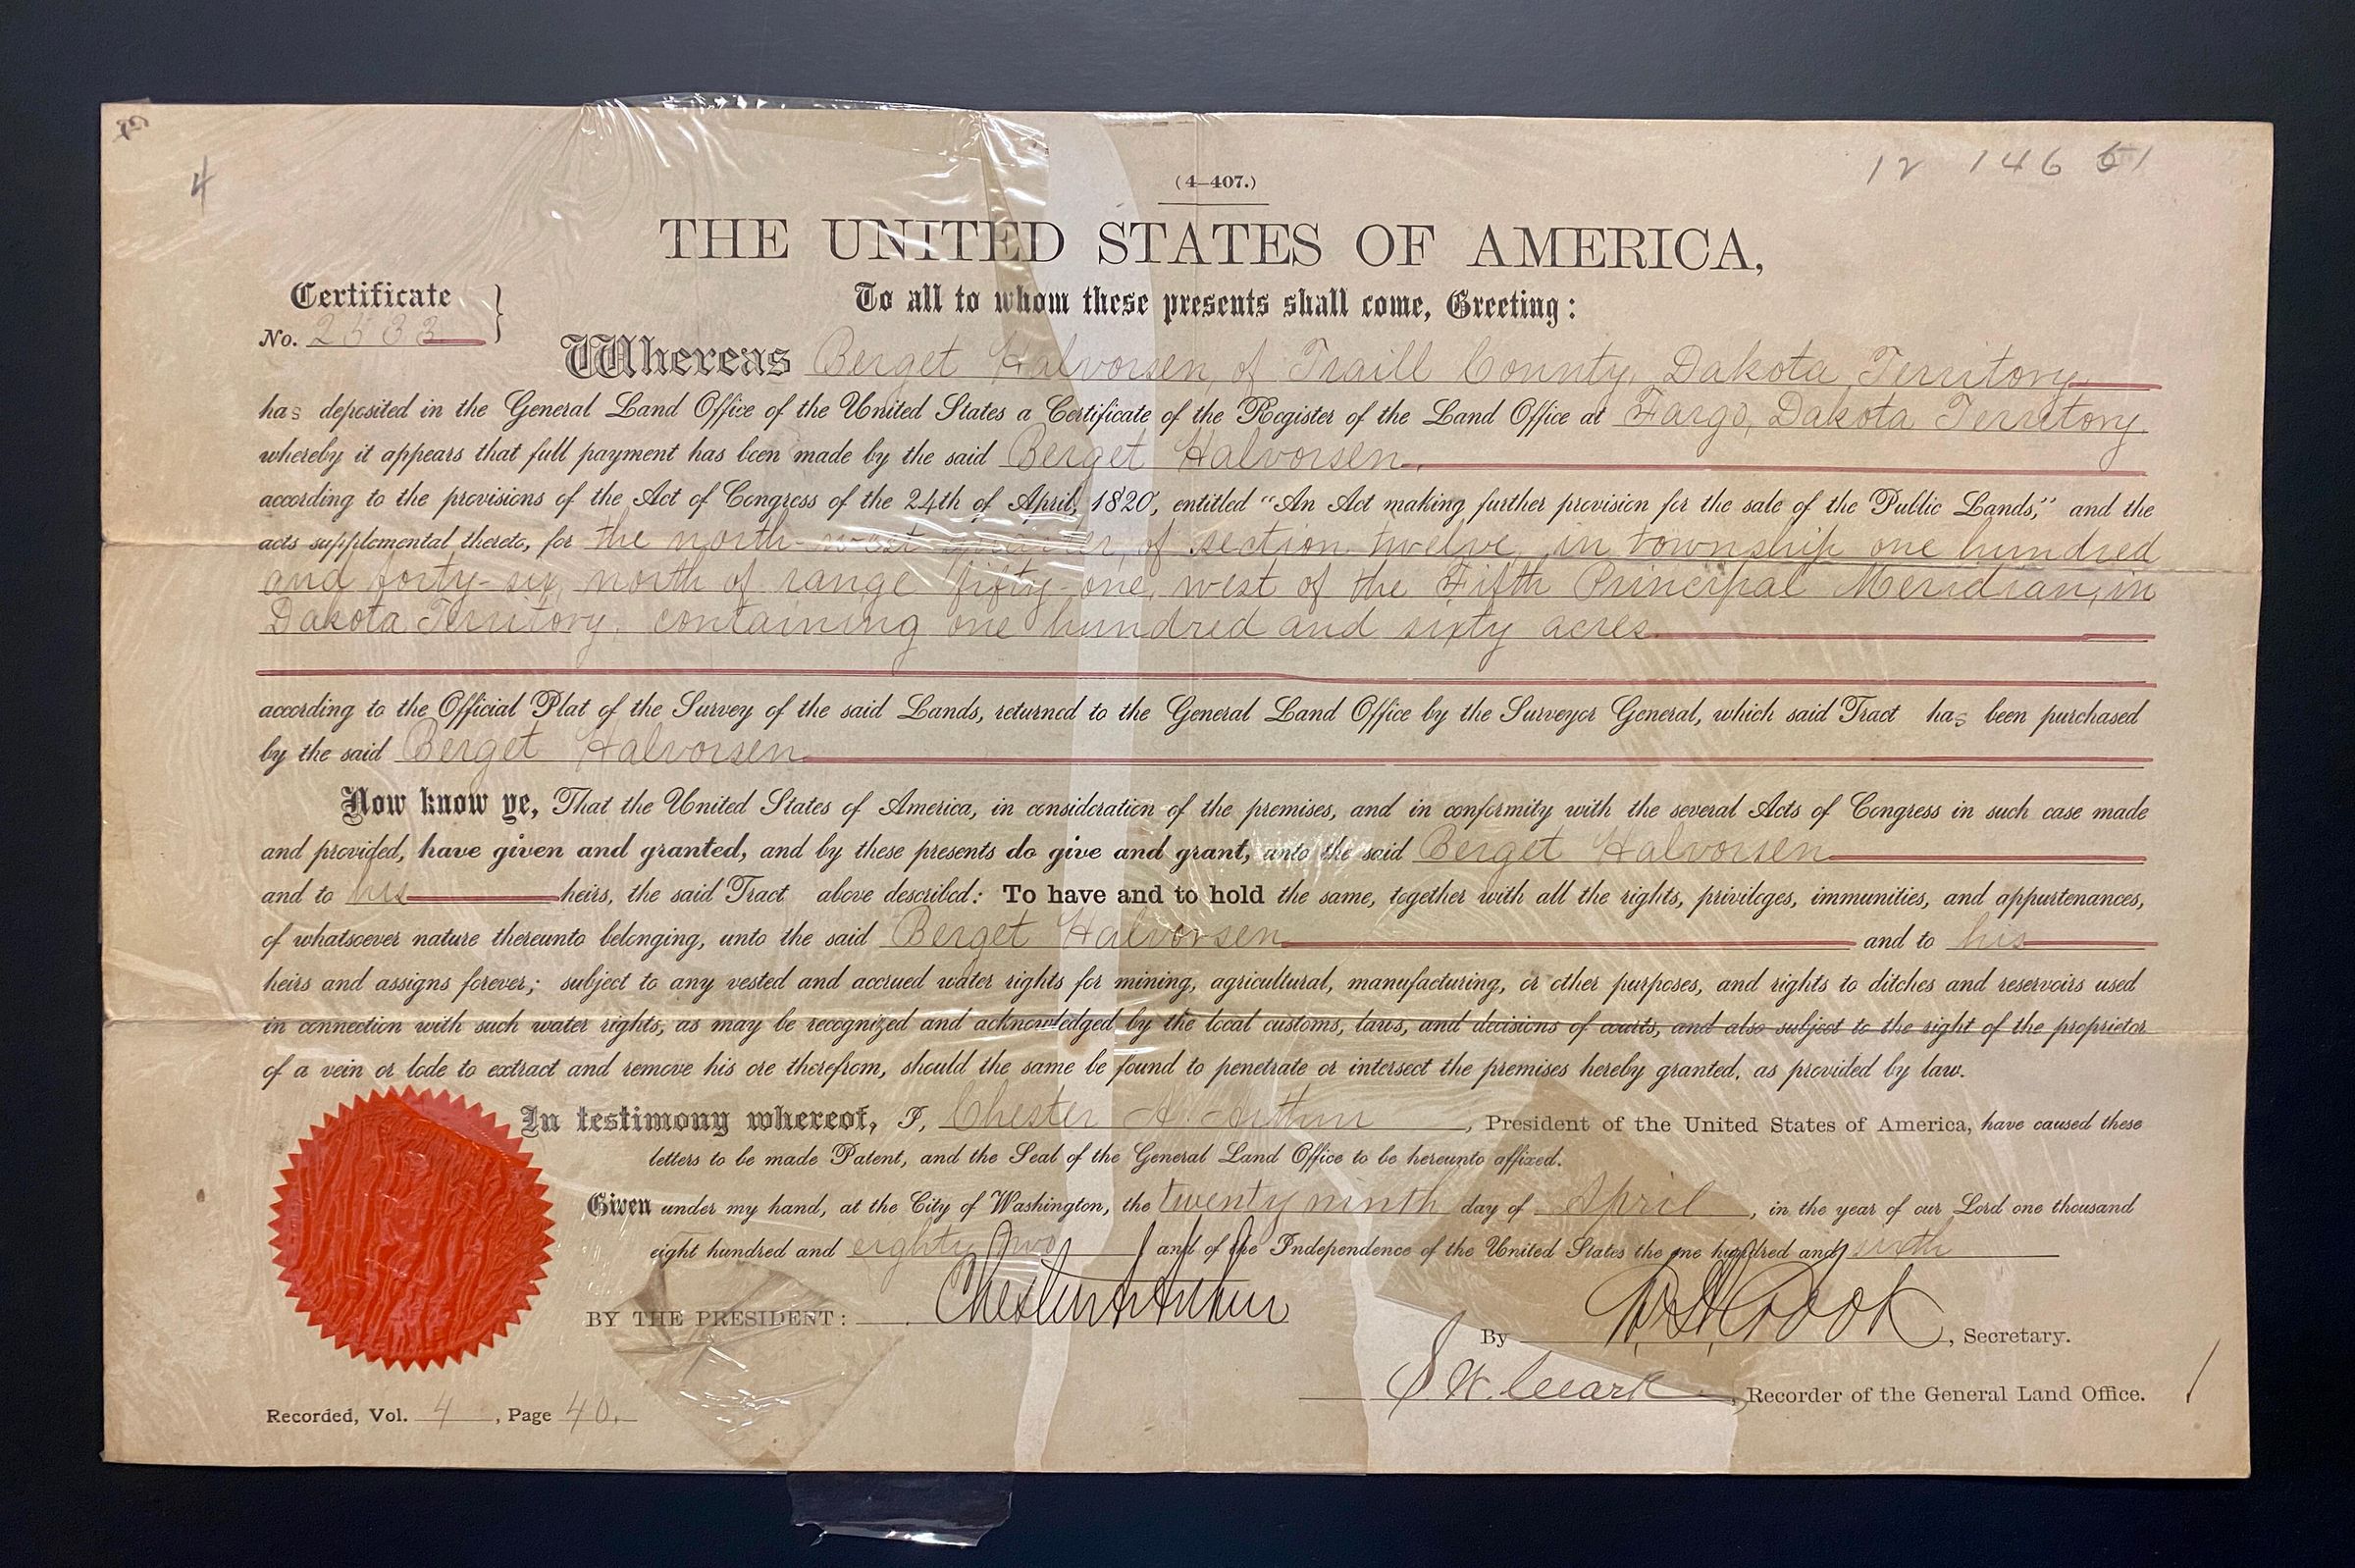 4
12 146 51
(4—407.)
THE UNITED STATES OF AMERICA,
Certificate
To all to whom these presents shall come, Greeting:
No. 2533
Whereas Berget Halvorsen, of Traill County, Dakota Territory
has deposited in the General Land Office of the United States a Certificate of the Register of the Land Office at Fargo, Dakota Territory,
whereby it appears that full payment has been made by the said Berget Halvorsen,
according to the provisions of the Act of Congress of the 24th of April, 1820, entitled “An Act making further provision for the sale of the Public Lands,” and the
acts supplemental thereto, for the north-west quarter, of section twelve, in township one hundred
and forty-six, north of range fifty-one, west of the Fifth Principal Meridian, in
Dakota Territory, containing one hundred and sixty acres.
according to the Official Plat of the Survey of the said Lands, returned to the General Land Office by the Surveyor General, which said Tract has been purchased
by the said Berget Halvorsen
Now know ye, That the United States of America, in consideration of the premises, and in conformity with the several Acts of Congress in such case made
and provided, have given and granted, and by these presents do give and grant, unto the said Berget Halvorsen
and to his heirs, the said Tract above described: To have and to hold the same, together with all the rights, privileges, immunities, and appurtenances,
of whatsoever nature thereunto belonging, unto the said Berget Halvorsen and to his
heirs and assigns forever; subject to any vested and accrued water rights for mining, agricultural, manufacturing, or other purposes, and rights to ditches and reservoirs used
in connection with such water rights, as may be recognized and acknowledged by the local customs, laws, and decisions of courts, and also subject to the right of the proprietor
of a vein or lode to extract and remove his ore therefrom, should the same be found to penetrate or intersect the premises hereby granted, as provided by law.
In testimony whereof, I, Chester A. Arthur, President of the United States of America, have caused these
letters to be made Patent, and the Seal of the General Land Office to be hereunto affixed.
Given under my hand, at the City of Washington, the twenty ninth day of April, in the year of our Lord one thousand
eight hundred and eighty two and of the Independence of the United States the one hundred and sixth
BY THE PRESIDENT: Chester A Arthur
By Wm H Crook, Secretary.
S. W. Clark, Recorder of the General Land Office.
Recorded, Vol. 4, Page 40.